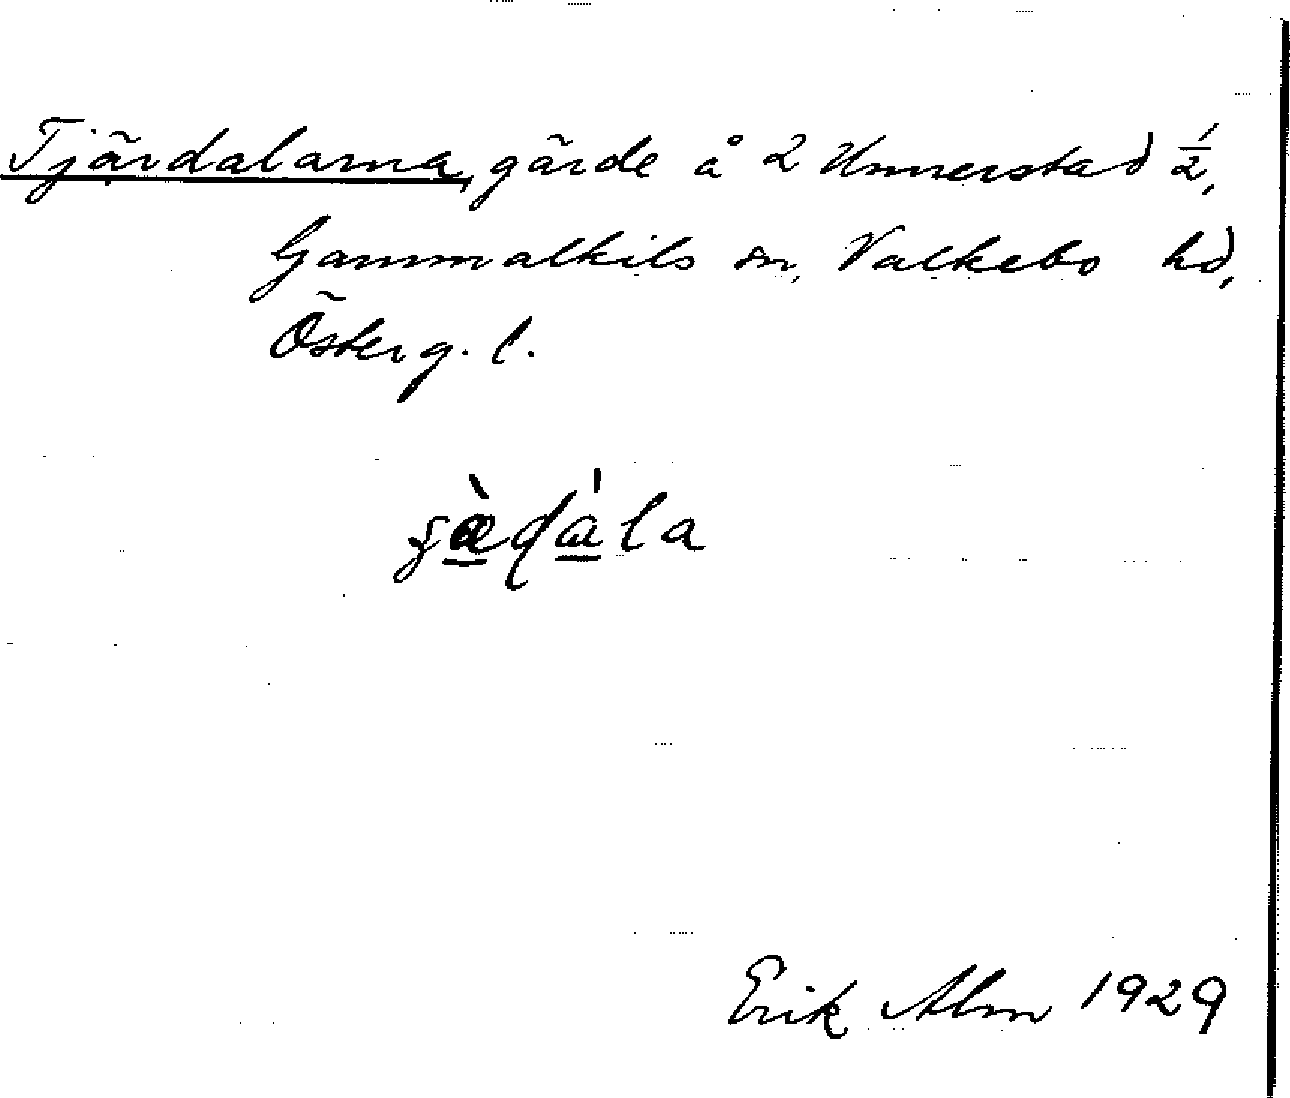 Tjärdalarna, gärde å 2 Unnerstad 1/2,
Gammalkils sn, Valkebo hd,
Österg. l.
Erik Alm 1929